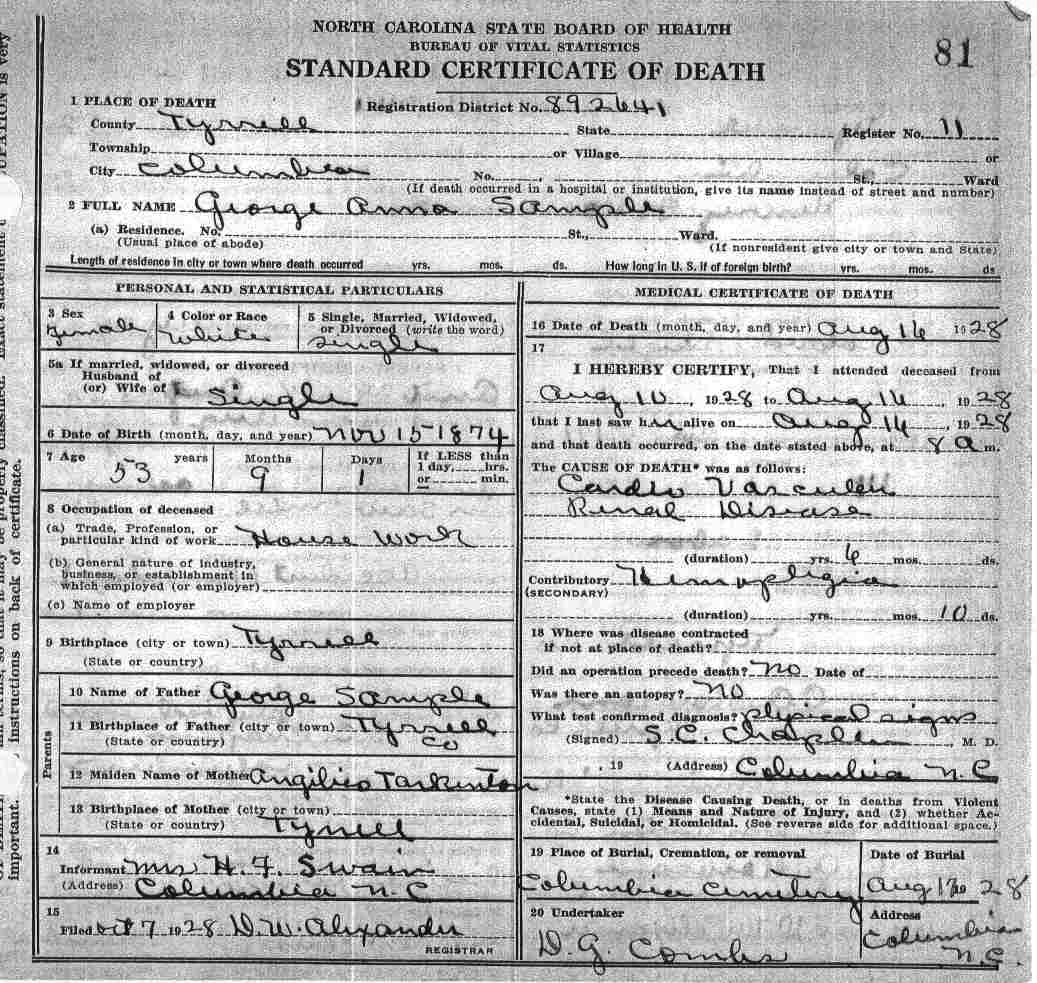 NORTH CAROLINA STATE BOARD OF HEALTH
BUREAU OF VITAL STATISTICS
STANDARD CERTIFICATE OF DEATH
81
1 PLACE OF DEATH
Registration District No. 892641
County Tyrrell State Register No. 11
Township or Village or
City Columbia No. , St., Ward
(If death occurred in a hospital or institution, give its name instead of street and number)
2 FULL NAME George Anna Sample
(a) Residence. No. St., Ward.
(Usual place of abode) (If nonresident give city or town and State)
Length of residence in city or town where death occurred yrs. mos. ds. How long in U. S. if of foreign birth? yrs. mos. ds
PERSONAL AND STATISTICAL PARTICULARS
3 Sex
Female
4 Color or Race
White
5 Single, Married, Widowed,
or Divorced (write the word)
Single
5a If married, widowed, or divorced
Husband of
(or) Wife of Single
6 Date of Birth (month, day, and year) Nov 15 1874
7 Age years Months Days If LESS than
53 9 1 1 day, hrs.
or min.
8 Occupation of deceased
(a) Trade, Profession, or
particular kind of work House Work
(b) General nature of industry,
business, or establishment in
which employed (or employer)
(c) Name of employer
9 Birthplace (city or town) Tyrrell
(State or country)
Parents
10 Name of Father George Sample
11 Birthplace of Father (city or town) Tyrrell
(State or country) Co
12 Maiden Name of Mother Angilico Tarkinton
13 Birthplace of Mother (city or town)
(State or country) Tyrrell
14
Informant Mrs H. F. Swain
(Address) Columbia N.C
15
Filed Oct 7 1928 D.W. Alexander
REGISTRAR
MEDICAL CERTIFICATE OF DEATH
16 Date of Death (month, day, and year) Aug 16 1928
17
I HEREBY CERTIFY, That I attended deceased from
Aug 10, 1928 to Aug 16, 1928
that I last saw her alive on Aug 14, 1928
and that death occurred, on the date stated above, at 8 a m.
The CAUSE OF DEATH* was as follows:
Cardio Vascular
Renal Disease
(duration) yrs. 6 mos. ds.
Contributory Hemoplegia
(SECONDARY)
(duration) yrs. mos. 10 ds.
18 Where was disease contracted
if not at place of death?
Did an operation precede death? No Date of
Was there an autopsy? No
What test confirmed diagnosis? physical signs
(Signed) S.C. Chaplin, M. D.
, 19 (Address) Columbia N.C
*State the Disease Causing Death, or in deaths from Violent
Causes, state (1) Means and Nature of Injury, and (2) whether Ac-
cidental, Suicidal, or Homicidal. (See reverse side for additional space.)
19 Place of Burial, Cremation, or removal Date of Burial
Columbia Cemetery Aug 28
20 Undertaker Address
D.G. Combs Columbia
N.C.
important. Instructions on back of certificate.